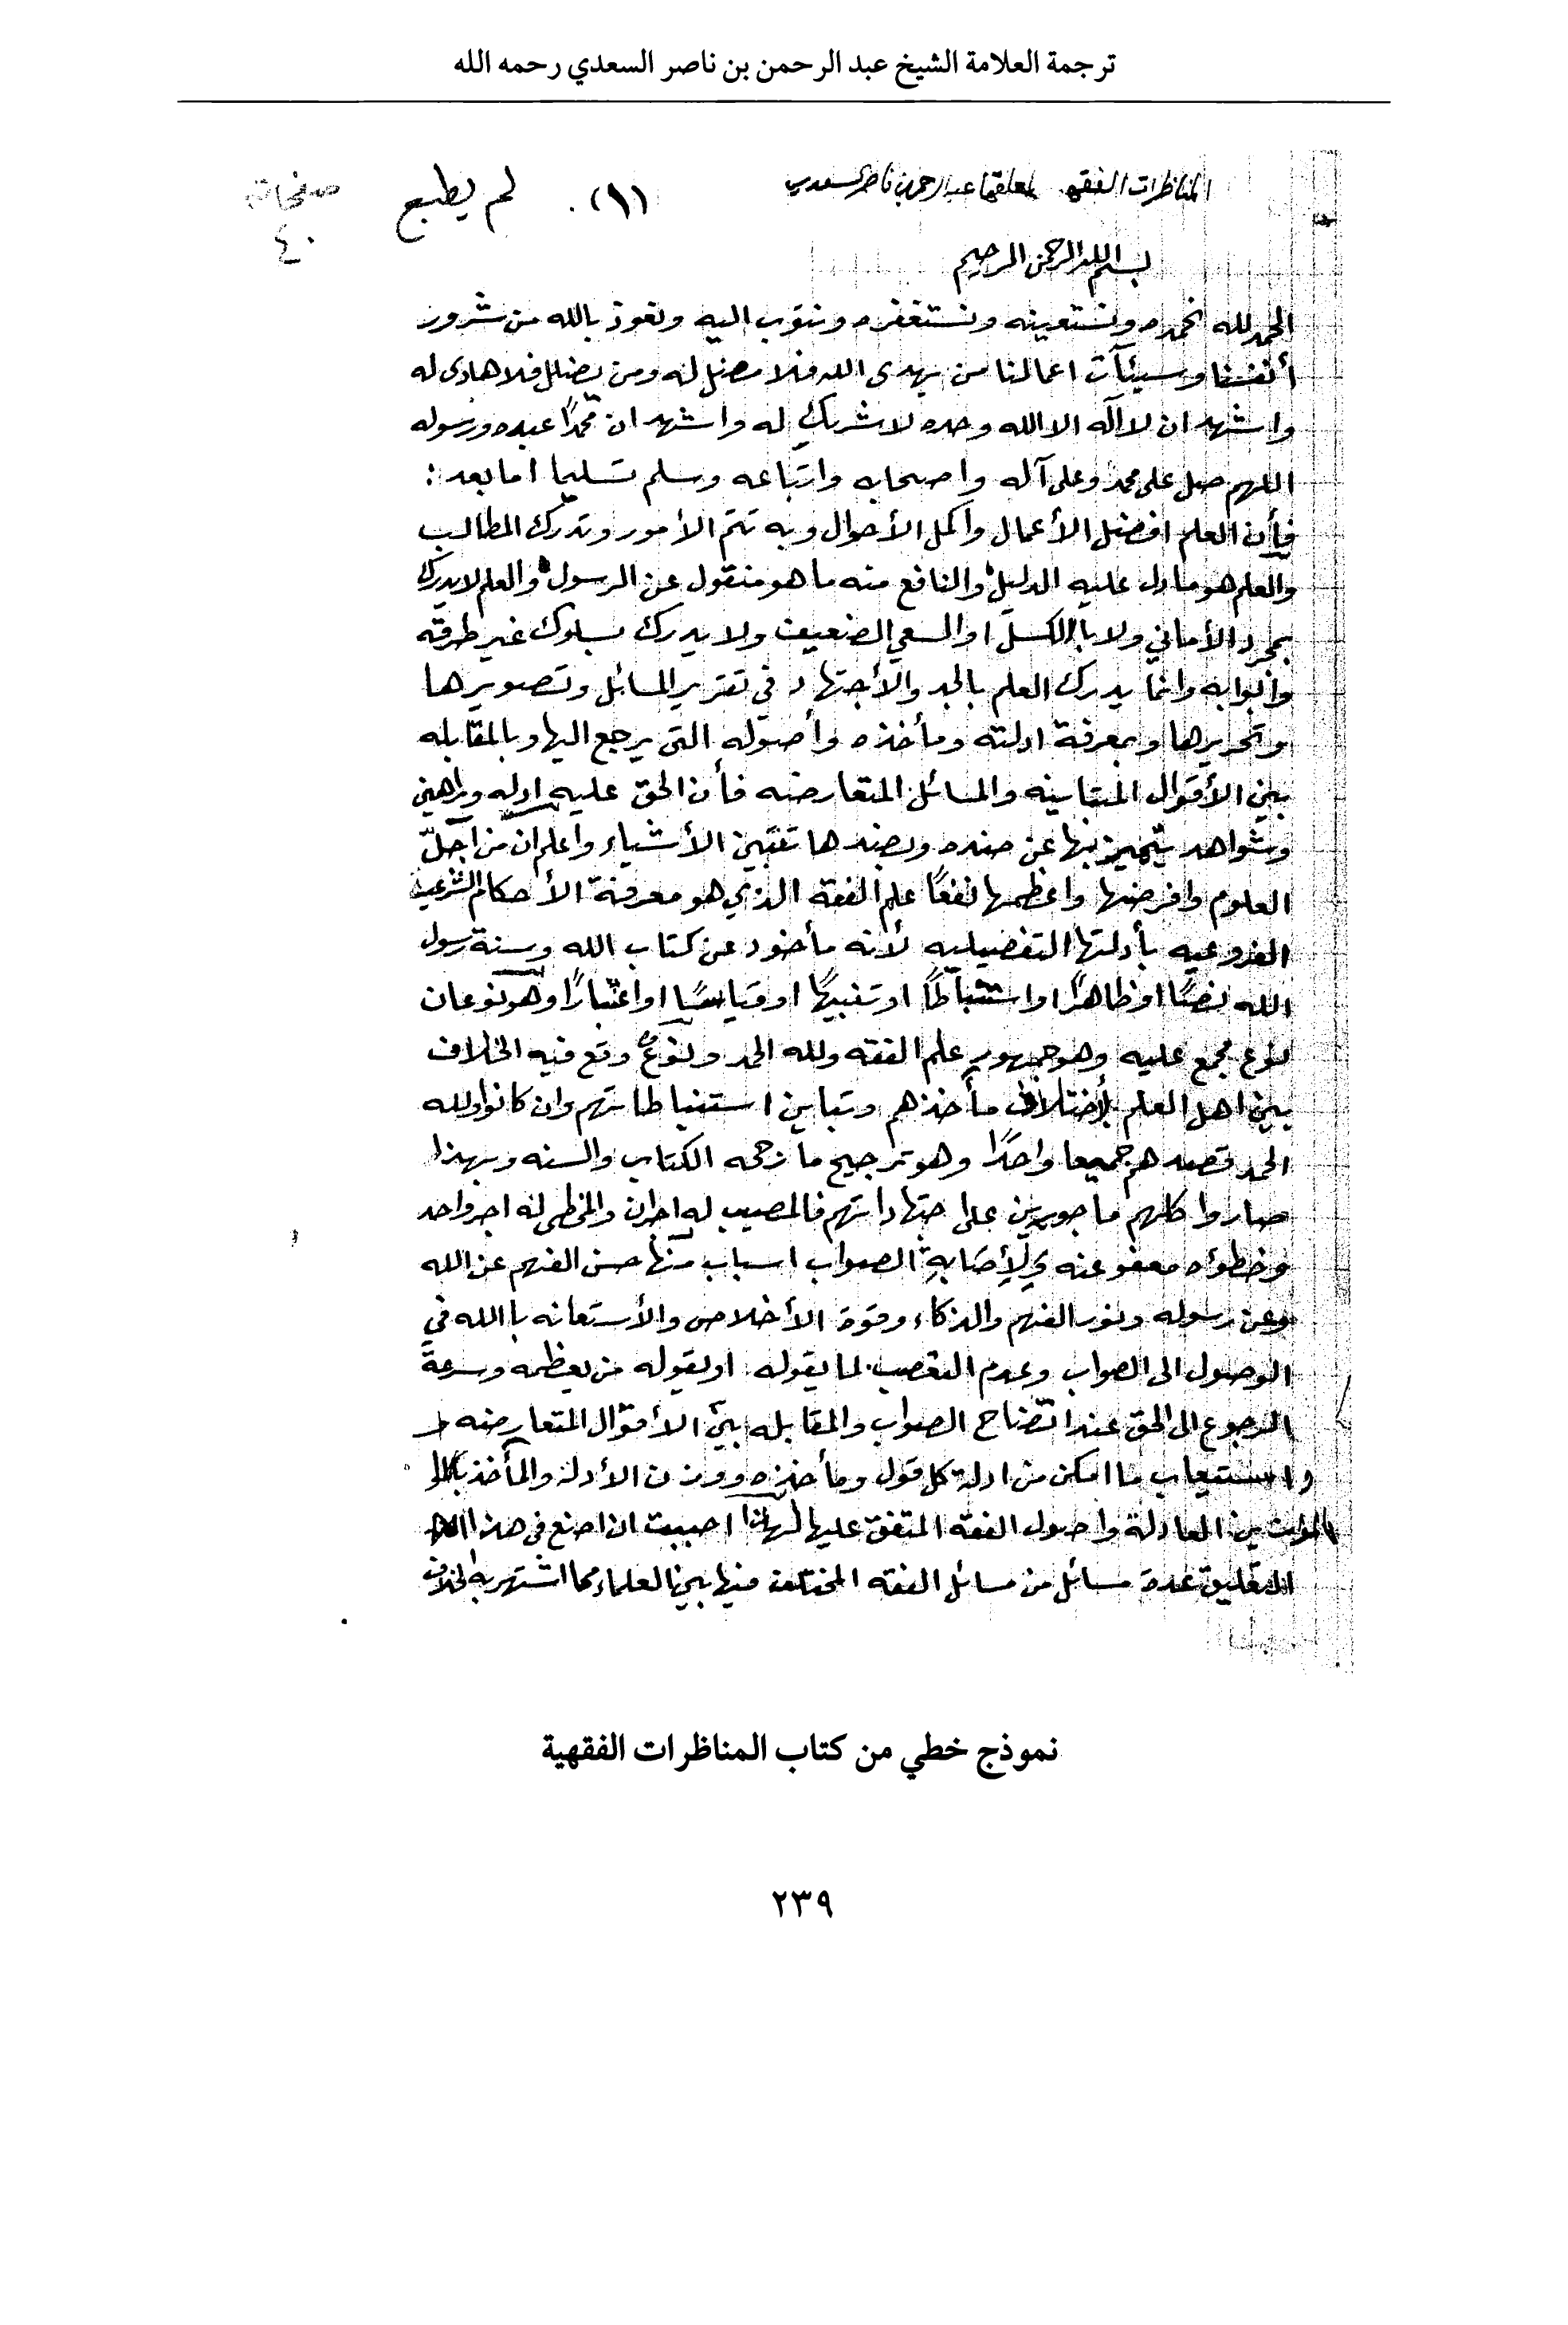 ترجمة العلامة الشيخ عبد الرحمن بن ناصر السعدي رحمه الله
المناظرات الفقهيه لمعلقها عبد الرحمن بن ناصر السعدي
(١)
لم يطبع
صفحاته
٤٠
بسم الله الرحمن الرحيم
الحمد لله نحمده ونستعينه ونستغفره ونتوب اليه ونعوذ بالله من شرور
أنفسنا وسيئآت اعمالنا من يهدى الله فلا مضل له ومن يضلل فلا هادى له
واشهد ان لا آله الا الله وحده لا شريك له واشهد ان محمدًا عبده ورسوله
اللهم صل على محمد وعلى آله واصحابه واتباعه وسلم تسليما اما بعد :
فأن العلم افضل الأعمال واكمل الأحوال وبه تتم الأمور وتدرك المطالب
والعلم هو مادل عليه الدليل والنافع منه ما هو منقول عن الرسول والعلم لا يدرك
بمجرد الأماني ولا باالكسل او السعي الضعيف ولا يدرك بسلوك غير طرقه
وأبوابه وانما يدرك العلم بالجد والأجتهاد في تقرير المسائل وتصويرها
وتحريرها وبمعرفة ادلته ومأخذه وأصوله التى يرجع اليها وبالمقابله
بين الأقوال المتباينه والمسائل المتعارضه فأن الحق عليه ادله وبراهين
وشواهد يتميز بها عن ضده وبضدها تتبين الأشياء واعلم ان من اجلّ
العلوم وافرضها واعظمها نفعًا علم الفقه الذي هو معرفة الأحكام الشرعيه
الفروعيه بأدلتها التفصيليه لأنه مأخوذ عن كتاب الله وسنة رسول
الله نصًا او ظاهرًا او استنباطًا او تنبيهًا او قياسًا او اعتبارًا وهو نوعان
نوع مجمع عليه وهو جمهور علم الفقه ولله الحمد ونوع وقع فيه الخلاف
بين اهل العلم لأختلاف مأخذهم وتباين استنباطاتهم وان كانوا ولله
الحمد قصدهم جميعا واحدًا وهو ترجيح ما رجحه الكتاب والسنه وبهذا
صاروا كلهم ماجورين على اجتهاداتهم فالمصيب له اجران والمخطى له اجر واحد
وخطؤه معفو عنه ولأصَابةِ الصواب اسباب منها حسن الفهم عن الله
وعن رسوله ونور الفهم والذكاء وقوة الأخلاص والأستعانه باالله في
الوصول الى الصواب وعدم التعصب لما يقوله او يقوله من يعظمه وسرعة
الرجوع الى الحق عند اتضاح الصواب والمقابله بين الأقوال المتعارضه
واستيعاب ما امكن من ادلة كل قول ومأخذه ووزن الأدله والمأخذ
الموازين العادلة واصول الفقه المتفق عليها لهاذا احببت ان اصنع في هذا
التعليق عدة مسائل من مسائل الفقه المختلف فيها بين العلماء مما اشتهر به الخلاف
نموذج خطي من كتاب المناظرات الفقهية
٢٣٩